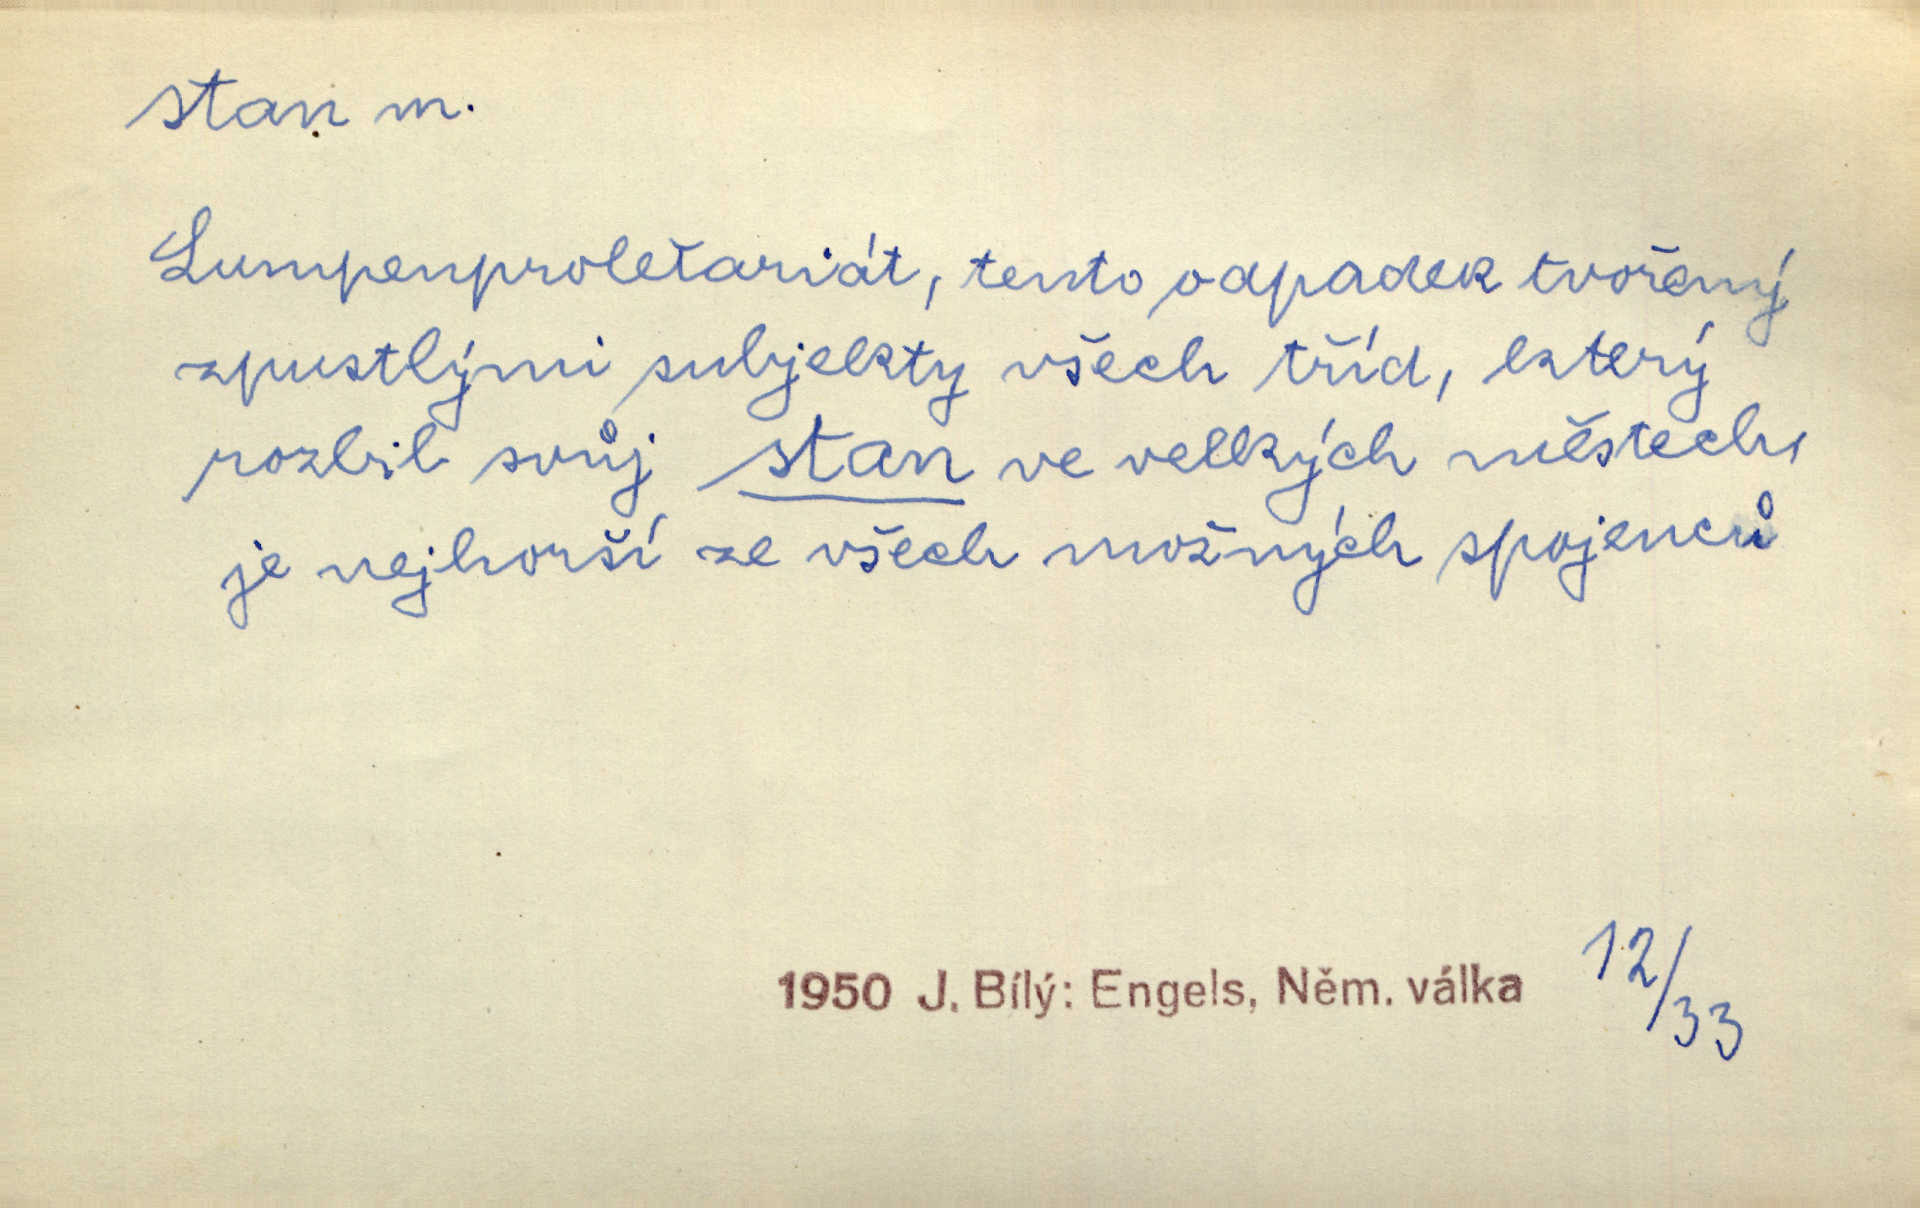 stan m.
Lumpenproletariát, tento odpadek tvořený
zpustlými subjekty všech tříd, který
rozbil svůj stan ve velkých městech,
je nejhorší ze všech možných spojenců
1950 J. Bílý: Engels, Něm. válka 12/33